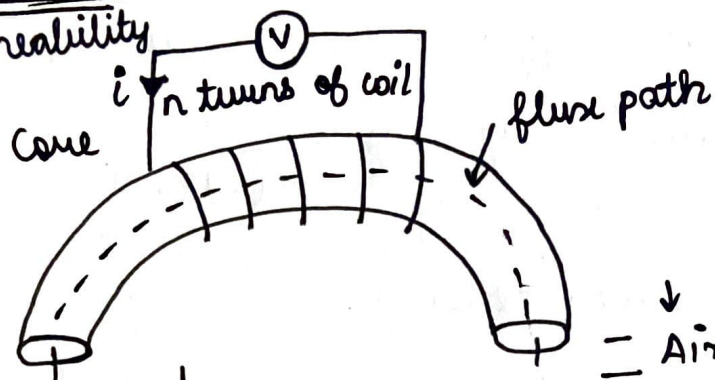 reability
V
i n turns of coil
flux path
Core
= Air